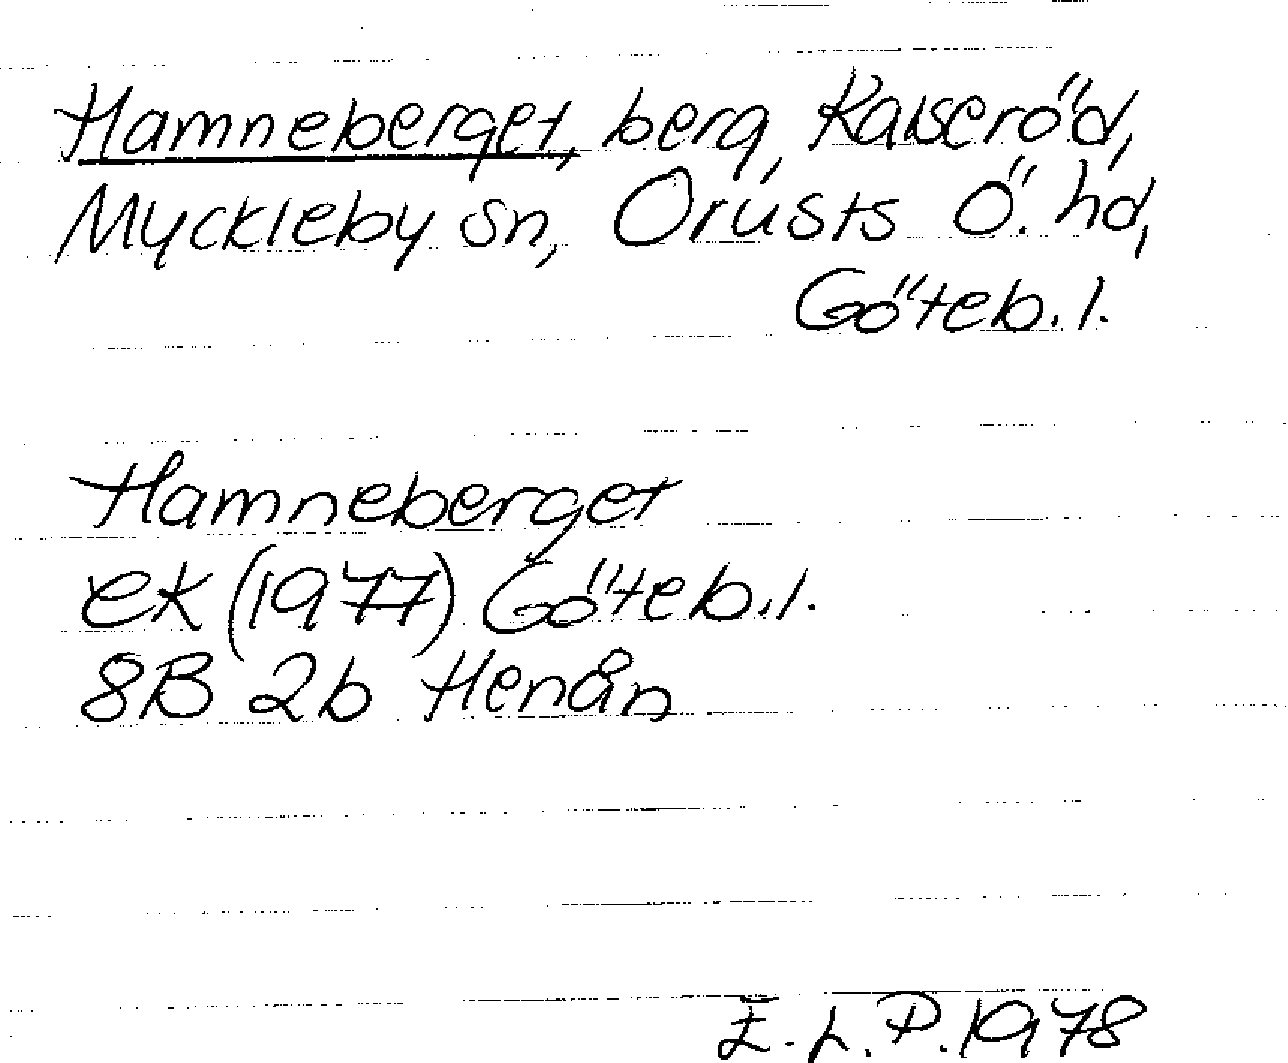 Hamneberget, berg, Kalseröd,
Myckleby sn, Orusts Ö. hd,
Göteb. l.
Hamneberget
ek (1977) Göteb. l.
8B 2b Henån
E. L. P. 1978